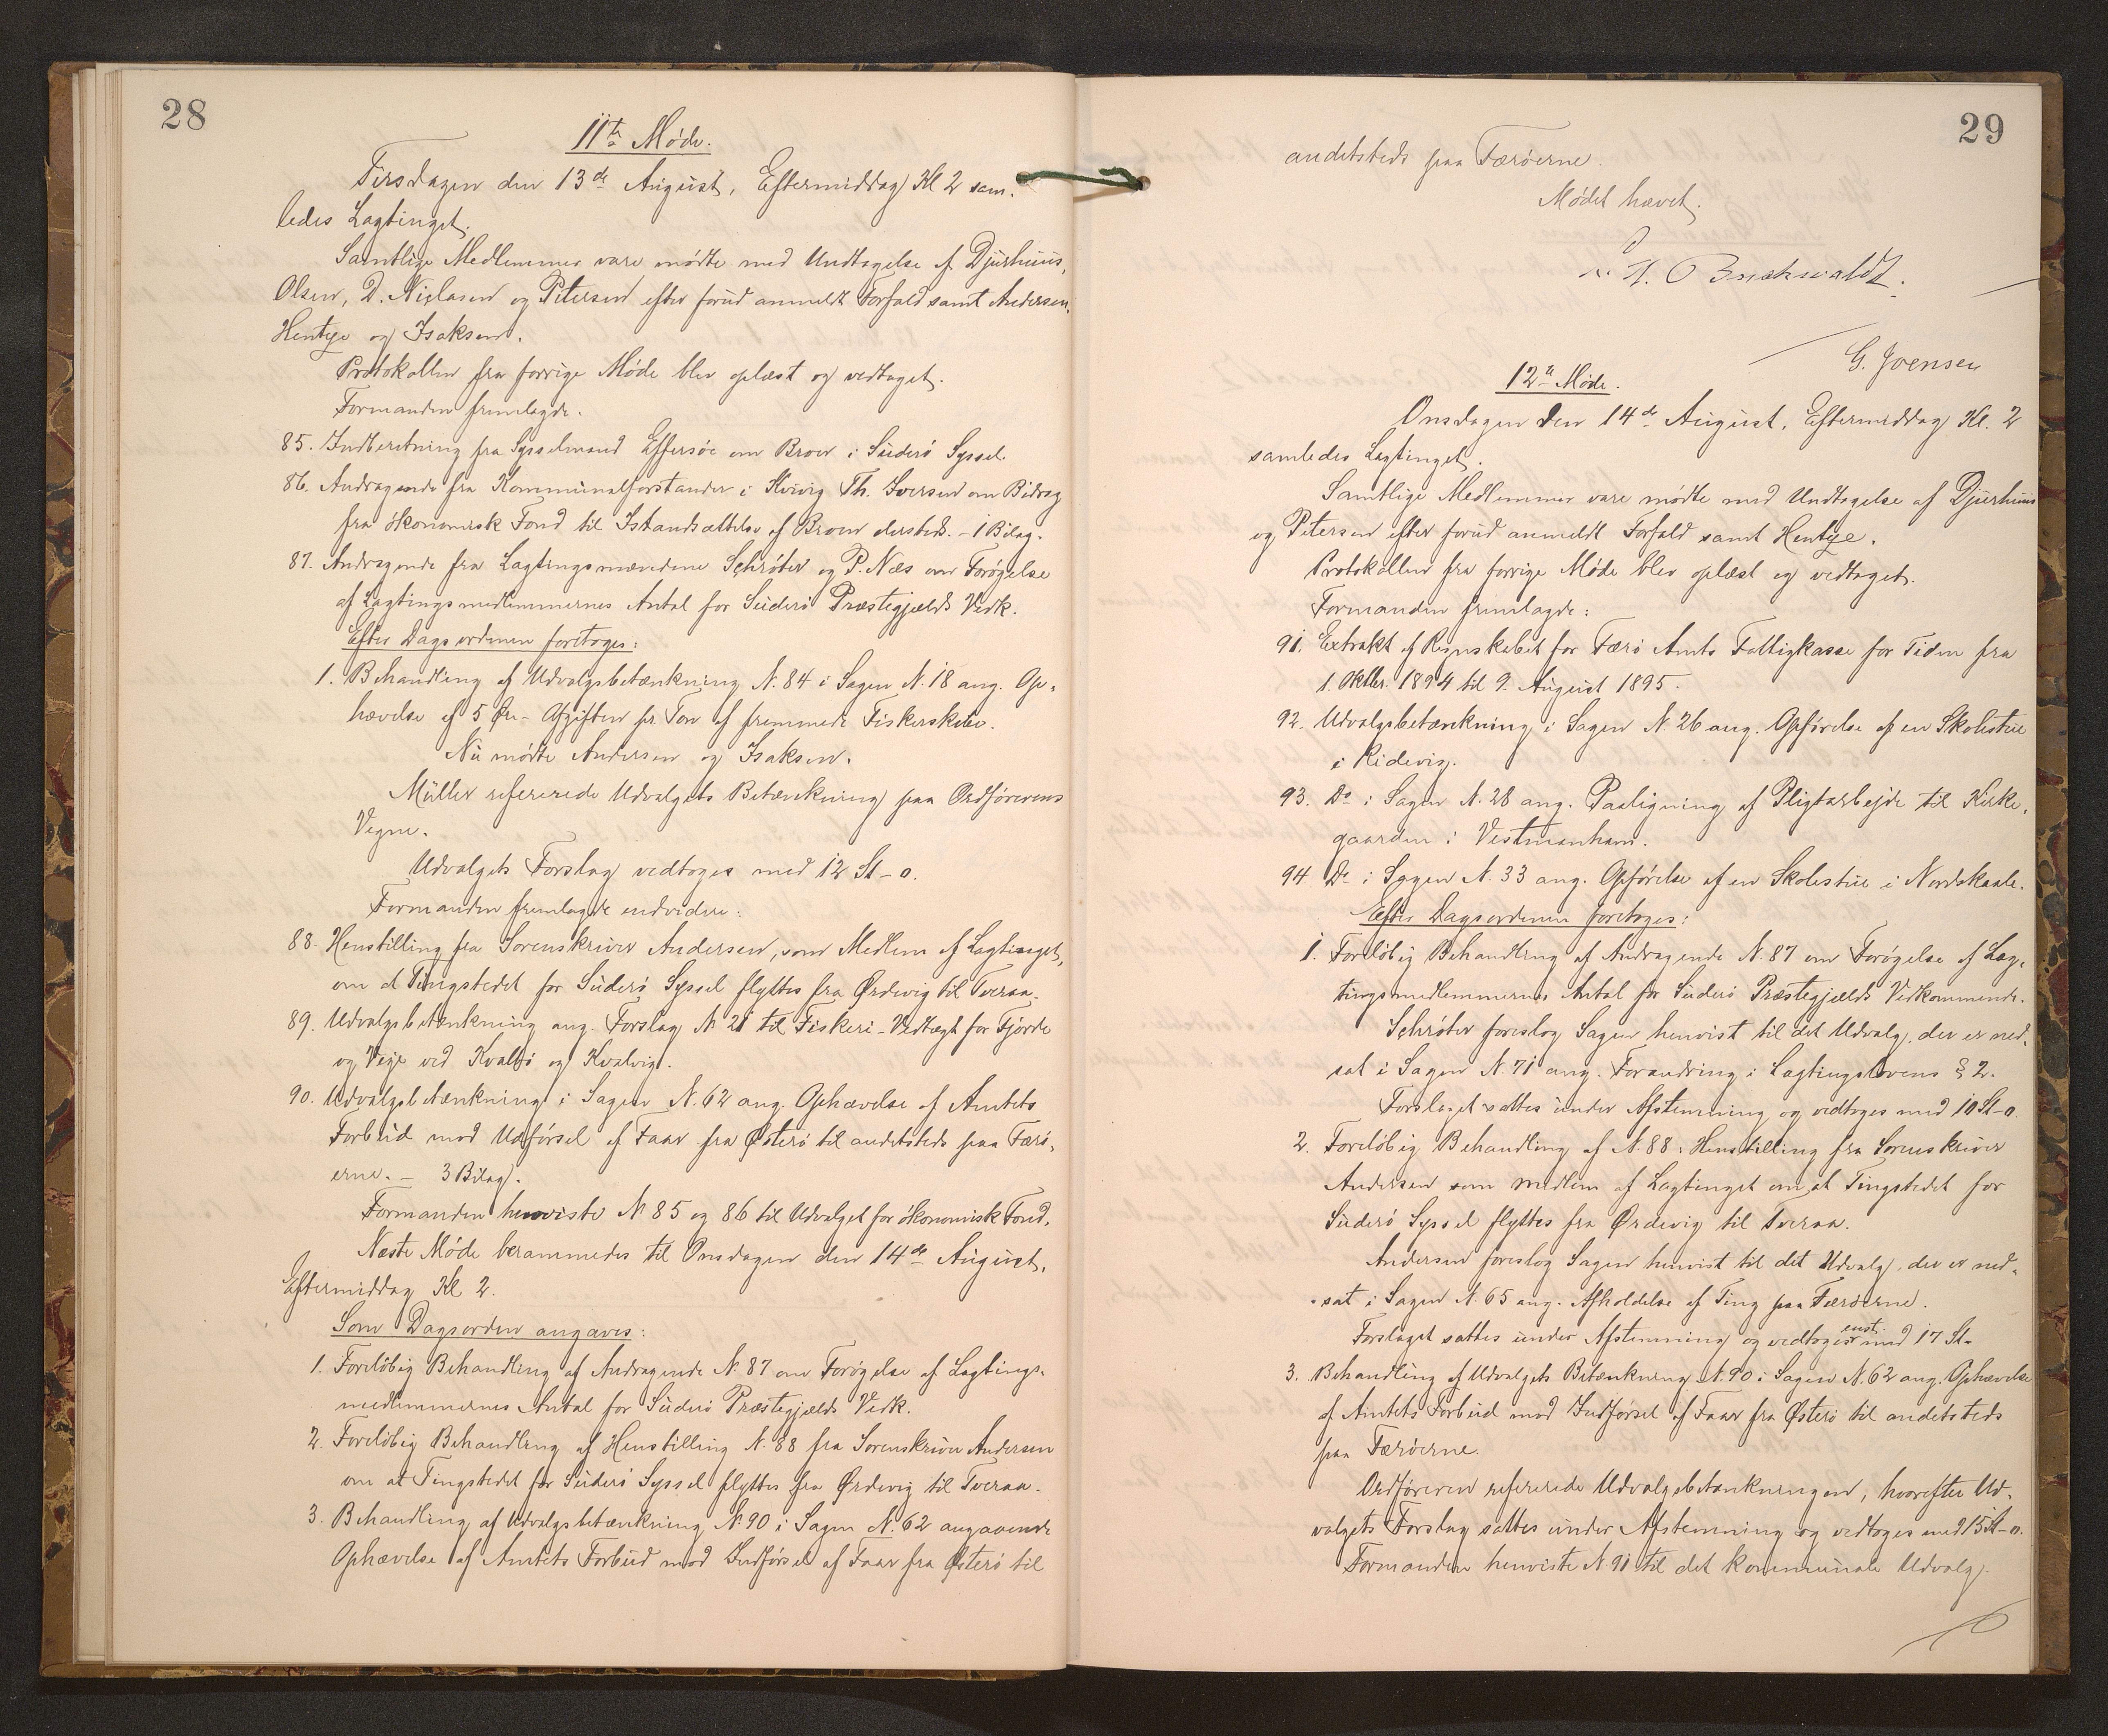 28
11te Møde.
Tirsdagen den 13de August, Eftermiddag Kl 2 sam-
ledes Lagtinget.
Samtlige Medlemmer vare mødte med Undtagelse af Djurhuus,
Olsen, D. Niclasen og Petersen efter forud anmeldt Forfald samt Andersen,
Hentze og Isaksen.
Protokollen fra forrige Møde blev oplæst og vedtaget.
Formanden fremlagde.
85. Indberetning fra Sysselmand Effersøe om Broer i Suderø Syssel.
86. Andragende fra Kommunalforstander i Kvivig Th. Iversen om Bidrag
fra økonomisk Fond til Istandsættelse af Broen dersteds. - 1 Bilag.
87. Andragende fra Lagtingsmændene Schrøter og P. Næs om Forøgelse
af Lagtingsmedlemmernes Antal for Suderø Præstegjælds Vedk.
Efter Dagsordenen foretoges:
1. Behandling af Udvalgsbetænkning N. 84 i Sagen N. 18 ang. Op-
hævelse af 5 Øre-Afgiften pr. Ton af fremmede Fiskerskibe.
Nu mødte Andersen og Isaksen.
Müller refererede Udvalgets Betænkning paa Ordførerens
Vegne.
Udvalgets Forslag vedtoges med 12 St - 0.
Formanden fremlagde endvidere:
88. Henstilling fra Sorenskriver Andersen, som Medlem af Lagtinget,
om at Tingstedet for Suderø Syssel flyttes fra Ørdevig til Tveraa.
89. Udvalgsbetænkning ang. Forslag N 21 til Fiskeri-Vedtægt for Fjorde
og Veje ved Kvalbø og Kvalvig.
90. Udvalgsbetænkning i Sagen N. 62 ang. Ophævelse af Amtets
Forbud mod Udførsel af Faar fra Østerø til andetsteds paa Færø-
erne. - 3 Bilag.
Formanden henviste N 85 og 86 til Udvalget for økonomisk Fond.
Næste Møde berammedes til Onsdagen den 14de August,
Eftermiddag Kl 2.
Som Dagsorden angaves:
1. Foreløbig Behandling af Andragende N. 87 om Forøgelse af Lagtings-
medlemmernes Antal for Suderø Præstegjælds Vedk.
2. Foreløbig Behandling af Henstilling N. 88 fra Sorenskriver Andersen
om at Tingstedet for Suderø Syssel flyttes fra Ørdevig til Tveraa.
3. Behandling af Udvalgsbetænkning N. 90 i Sagen N. 62 angaaende
Ophævelse af Amtets Forbud mod Indførsel af Faar fra Østerø til
29
andetsteds paa Færøerne.
Mødet hævet.
Buchwaldt.
G. Joensen
12te Møde.
Onsdagen den 14de August, Eftermiddag Kl. 2
samledes Lagtinget.
Samtlige Medlemmer vare mødte med Undtagelse af Djurhuus
og Petersen efter forud anmeldt Forfald samt Hentze.
Protokollen fra forrige Møde blev oplæst og vedtaget.
Formanden fremlagde:
91. Extrakt af Regnskabet for Færø Amts Fattigkasse for Tiden fra
1. Oktbr. 1894 til 9. August 1895.
92. Udvalgsbetænkning i Sagen N. 26 ang. Opførelse af en Skolestue
i Ridevig.
93. Do i Sagen N. 28 ang. Paaligning af Pligtarbejde til Kirke-
gaarden i Vestmanhavn.
94 Do i Sagen N. 33 ang. Opførelse af en Skolestue i Nordskaale.
Efter Dagsordenen foretoges:
1. Foreløbig Behandling af Andragende N. 87 om Forøgelse af Lag-
tingsmedlemmernes Antal for Suderø Præstegjælds Vedkommende.
Schrøter foreslog Sagen henvist til det Udvalg, der er ned-
sat i Sagen N. 71 ang. Forandring i Lagtingslovens § 2.
Forslaget sattes under Afstemning og vedtoges med 10 St-0.
2. Foreløbig Behandling af N. 88: Henstilling fra Sorenskriver
Andersen som Medlem af Lagtinget om at Tingstedet for
Suderø Syssel flyttes fra Ørdevig til Tveraa.
Andersen foreslog Sagen henvist til det Udvalg, der er ned-
sat i Sagen N. 65 ang. Afholdelse af Ting paa Færøerne.
Forslaget sattes under Afstemning og vedtoges enst. med 17 St-
3. Behandling af Udvalgets Betænkning N. 90 i Sagen N. 62 ang. Ophævelse
af Amtets Forbud mod Indførsel af Faar fra Østerø til andetsteds
paa Færøerne.
Ordføreren refererede Udvalgsbetænkningen, hvorefter Ud-
valgets Forslag sattes under Afstemning og vedtoges med 15 St-0.
Formanden henviste N. 91 til det kommunale Udvalg.